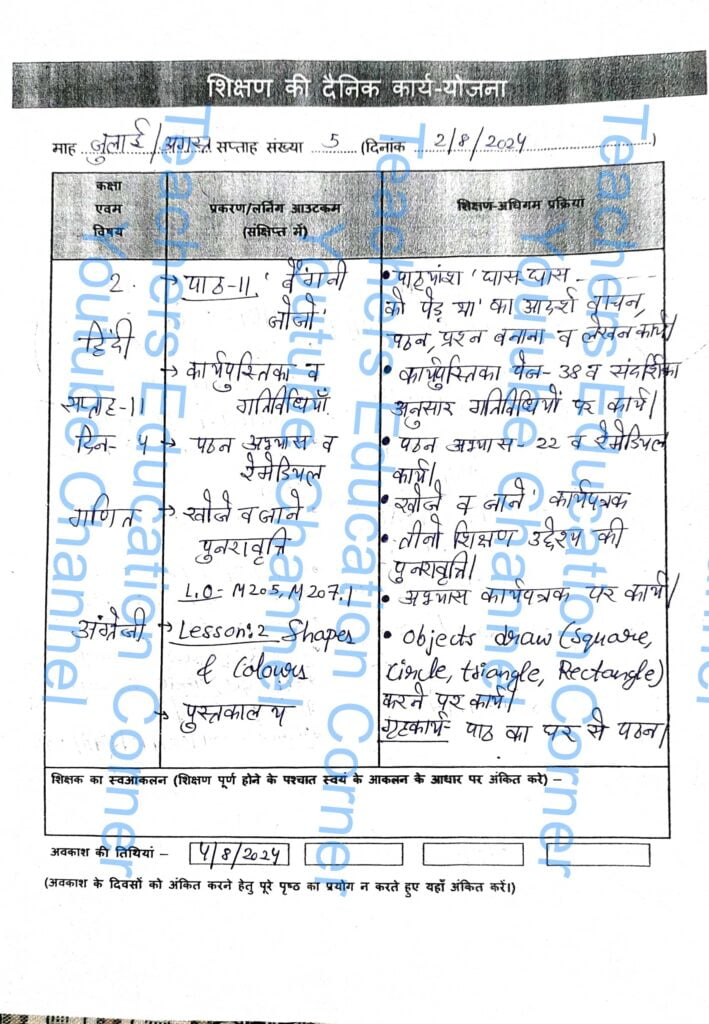 शिक्षण की दैनिक कार्य-योजना
माह जुलाई/अगस्त सप्ताह संख्या 5 (दिनांक 2/8/2024)
कक्षा
एवम
विषय
प्रकरण/लर्निंग आउटकम
(संक्षिप्त में)
शिक्षण-अधिगम प्रक्रिया
2.
हिंदी
सप्ताह-11
दिन- 4
→ पाठ-11 'बैंगनी
जोजो'
→ कार्यपुस्तिका व
गतिविधियाँ
→ पठन अभ्यास व
रेमेडियल
• पाठ्यांश 'घास घास -------
को पेड़ भा' का आदर्श वाचन,
पठन, प्रश्न बनाना व लेखन कार्य।
• कार्यपुस्तिका पेज- 38 व संदर्शिका
अनुसार गतिविधियों पर कार्य।
• पठन अभ्यास- 22 व रेमेडियल
कार्य।
गणित
→ खोजे व जाने
पुनरावृत्ति
L.O:- M205, M207.।
• 'खोजे व जाने' कार्यपत्रक
• तीनो शिक्षण उद्देश्य की
पुनरावृत्ति।
• अभ्यास कार्यपत्रक पर कार्य।
अंग्रेजी
→ Lesson:2 Shapes
& Colours
→ पुस्तकालय
• Objects draw (Square,
Circle, triangle, Rectangle)
करने पर कार्य।
गृहकार्य- पाठ का घर से पठन।
शिक्षक का स्वआकलन (शिक्षण पूर्ण होने के पश्चात स्वयं के आकलन के आधार पर अंकित करे) –
अवकाश की तिथियां – 4/8/2024
(अवकाश के दिवसों को अंकित करने हेतु पूरे पृष्ठ का प्रयोग न करते हुए यहाँ अंकित करें।)
Teachers Education Corner
Youtube Channel
Teachers Education Corner
Youtube Channel
Teachers Education Corner
Youtube Channel